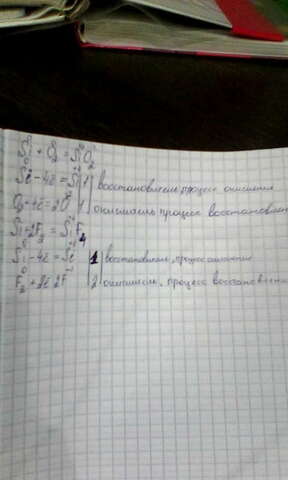 Si + O₂ = SiO₂
Si⁰ - 4ē = Si⁺⁴ 1 восстановитель, процесс окисления
O₂ - 4ē = 2O 1 окислитель, процесс восстановлен
Si + 2F₂ = SiF₄
Si⁰ - 4ē = Si⁺⁴ 1 восстановитель, процесс окисления
F₂⁰ + 2ē 2F⁻¹ 2 окислитель, процесс восстановлени